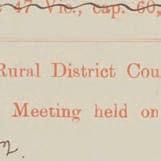 47 Vic., cap. 60
Rural District Cou
Meeting held on